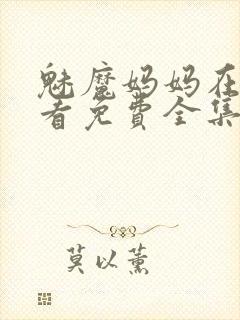 魅魔妈妈在
看免费全集
莫以薰